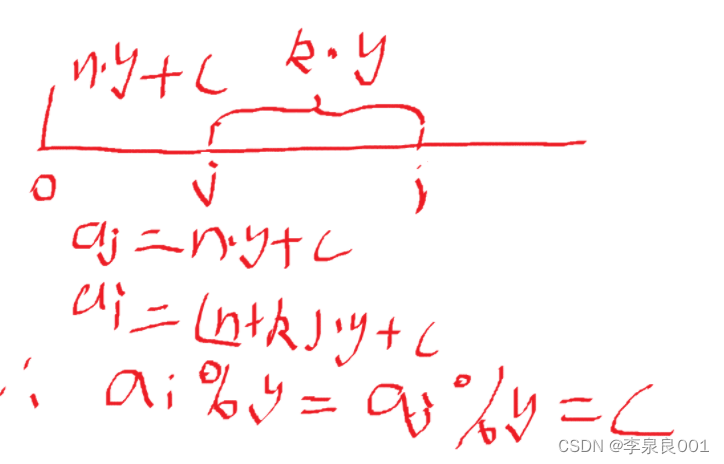 n·y+c k·y
0 j i
aj=n·y+c
ai=(n+k)·y+c
∴ ai%y=aj%y=c
CSDN @李泉良001